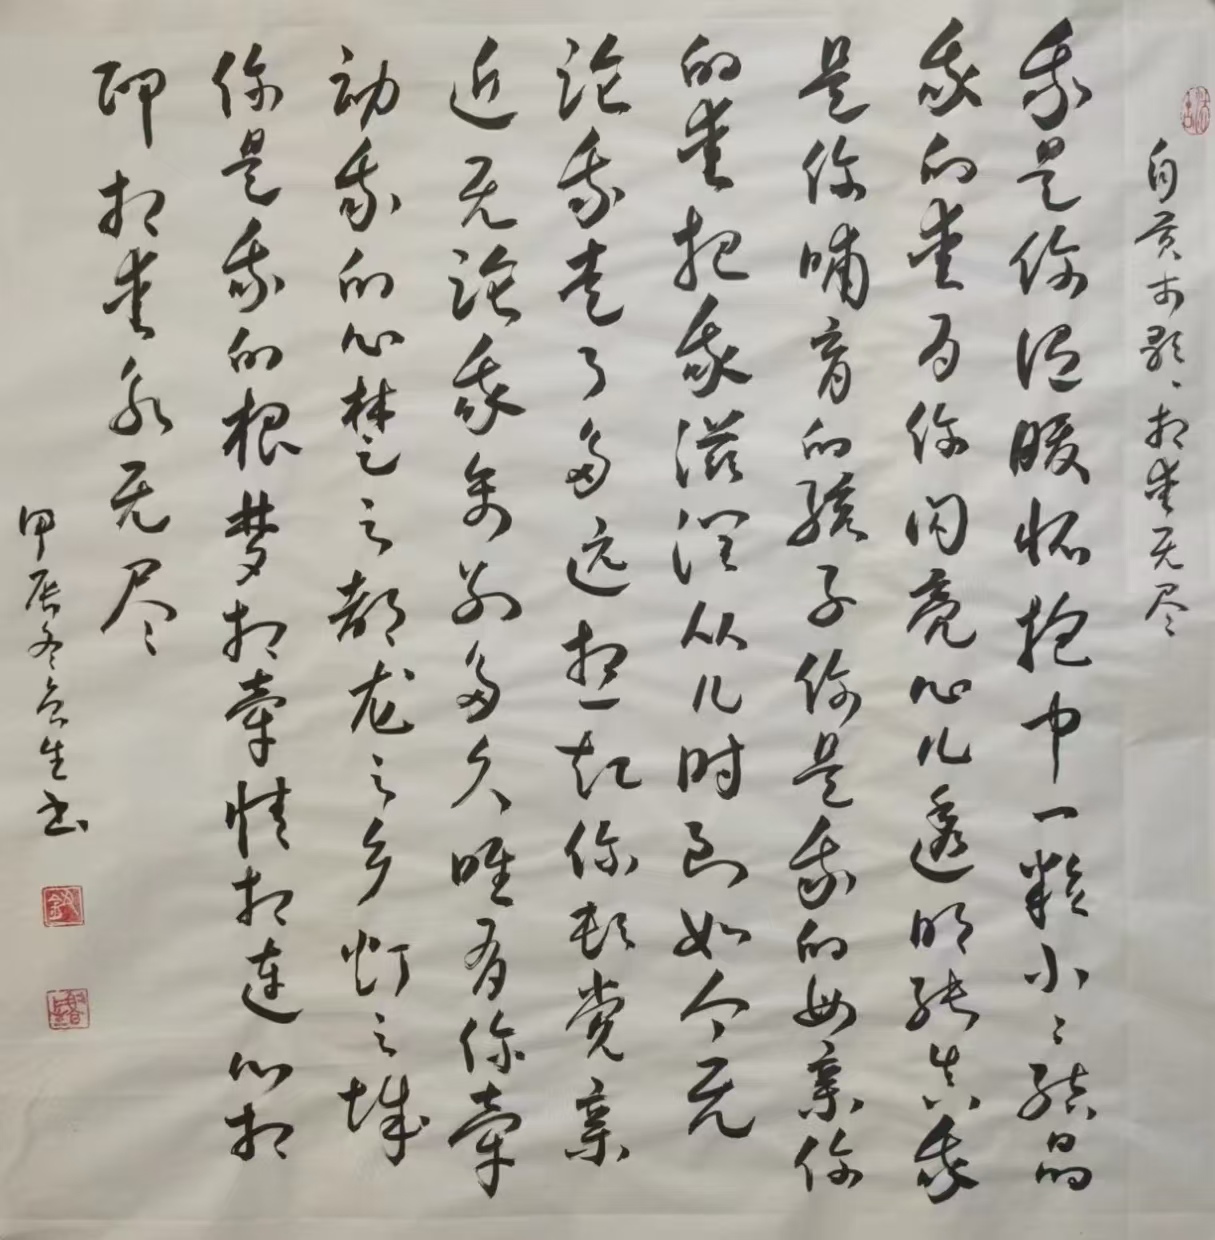 自贡市歌、相爱无尽
我是你温暖怀抱中一粒小々结晶
我的爱为你闪亮心儿透明纯真我
是你哺育的孩子你是我的母亲你
的爱把我滋润从儿时到如今无
论我走了多远想一起你顿觉亲
近无论我离别多久唯有你牵
动我的心楚之都龙之乡灯之城
你是我的根梦相牵情相连心相
印相爱永无尽
甲辰冬 生书